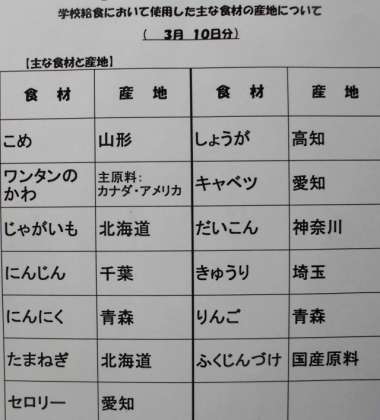 学校給食において使用した主な食材の産地について
( 3月 10日分)
【主な食材と産地】
食 材 産 地 食 材 産 地
こめ 山形 しょうが 高知
ワンタンの
かわ 主原料:
カナダ・アメリカ キャベツ 愛知
じゃがいも 北海道 だいこん 神奈川
にんじん 千葉 きゅうり 埼玉
にんにく 青森 りんご 青森
たまねぎ 北海道 ふくじんづけ 国産原料
セロリー 愛知